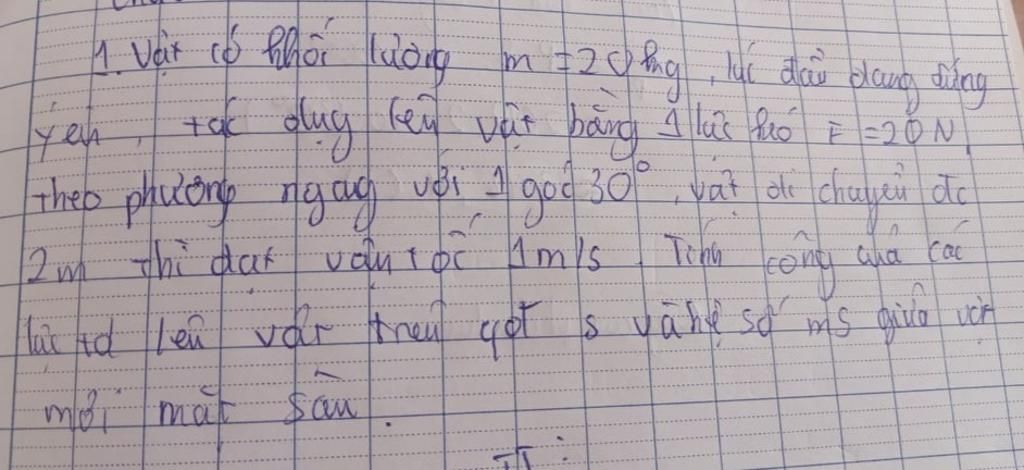 1. Vật có khối lượng m = 20 kg, lúc đầu đang đứng
yên, tác dụng lên vật bằng 1 lực kéo F = 20 N
theo phương ngang với 1 góc 30°, vật di chuyển đc
2m thì đạt vận tốc 1m/s. Tính công của các
lực td lên vật trên qđt s và hệ số ms giữa vật
mới mặt sàn.